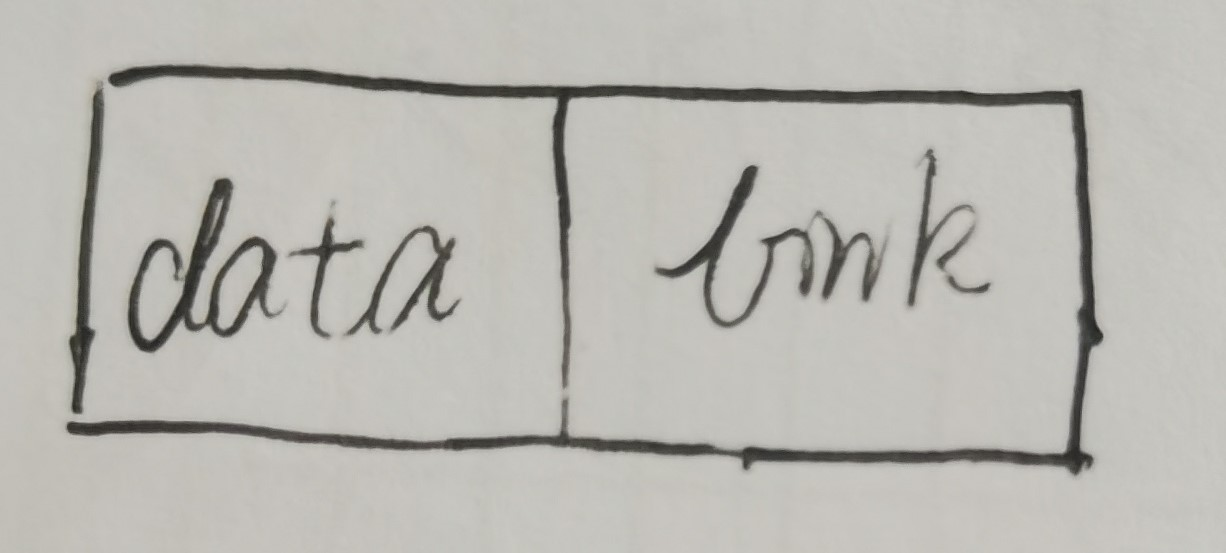 data link